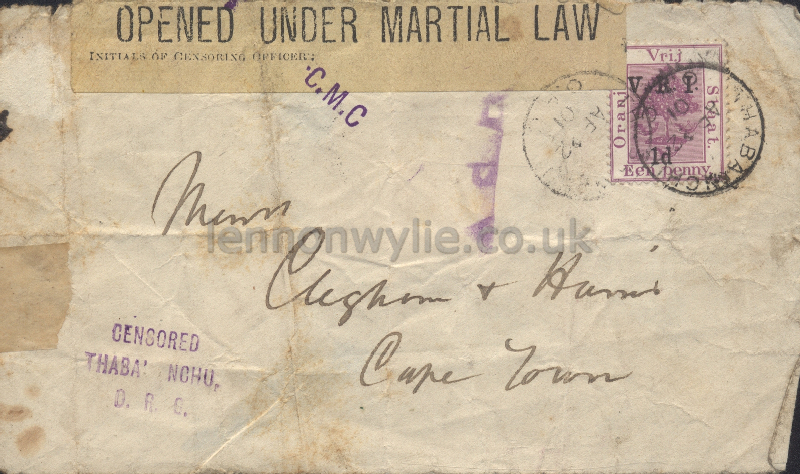 OPENED UNDER MARTIAL LAW
INITIALS OF CENSORING OFFICER:
C.M.C
Vrij
Oranje
Staat.
V. R. I.
1d
Een penny
THABANCHU
AP 22
01
Messrs
Cleghorn & Harris
Cape Town
lennonwylie.co.uk
CENSORED
THABA' NCHU,
O. R. C.